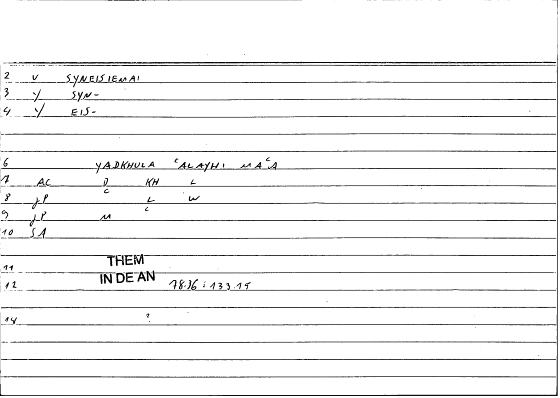 2 V SYNEISIEMAI
3 Y SYN-
4 Y EIS-
6 YADKHULA ʿALAYHI MAʿA
7 AC D KH L
8 JP ʿ L W
9 JP M ʿ
10 SA
11 THEM
12 IN DE AN 78.16 : 133.15
14 ?